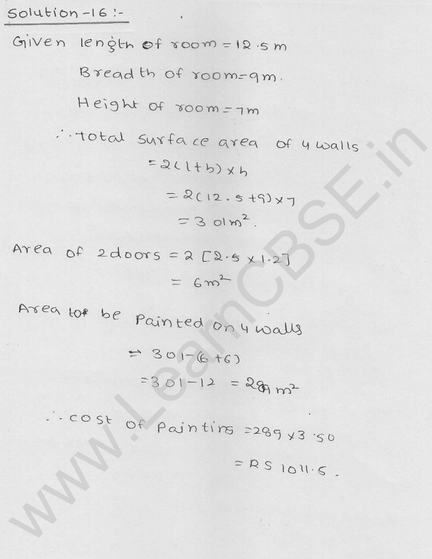 Solution-16:-
Given length of room = 12.5m
Breadth of room = 9m.
Height of room = 7m
∴ Total surface area of 4 walls
= 2(l+b)×h
= 2(12.5+9)×7
= 301m².
Area of 2doors = 2[2.5×1.2]
= 6m²
Area to be Painted on 4 walls
= 301-(6+6)
= 301-12 = 289m²
∴ cost of Painting = 289×3.50
= RS 1011.5.
www.LearnCBSE.in